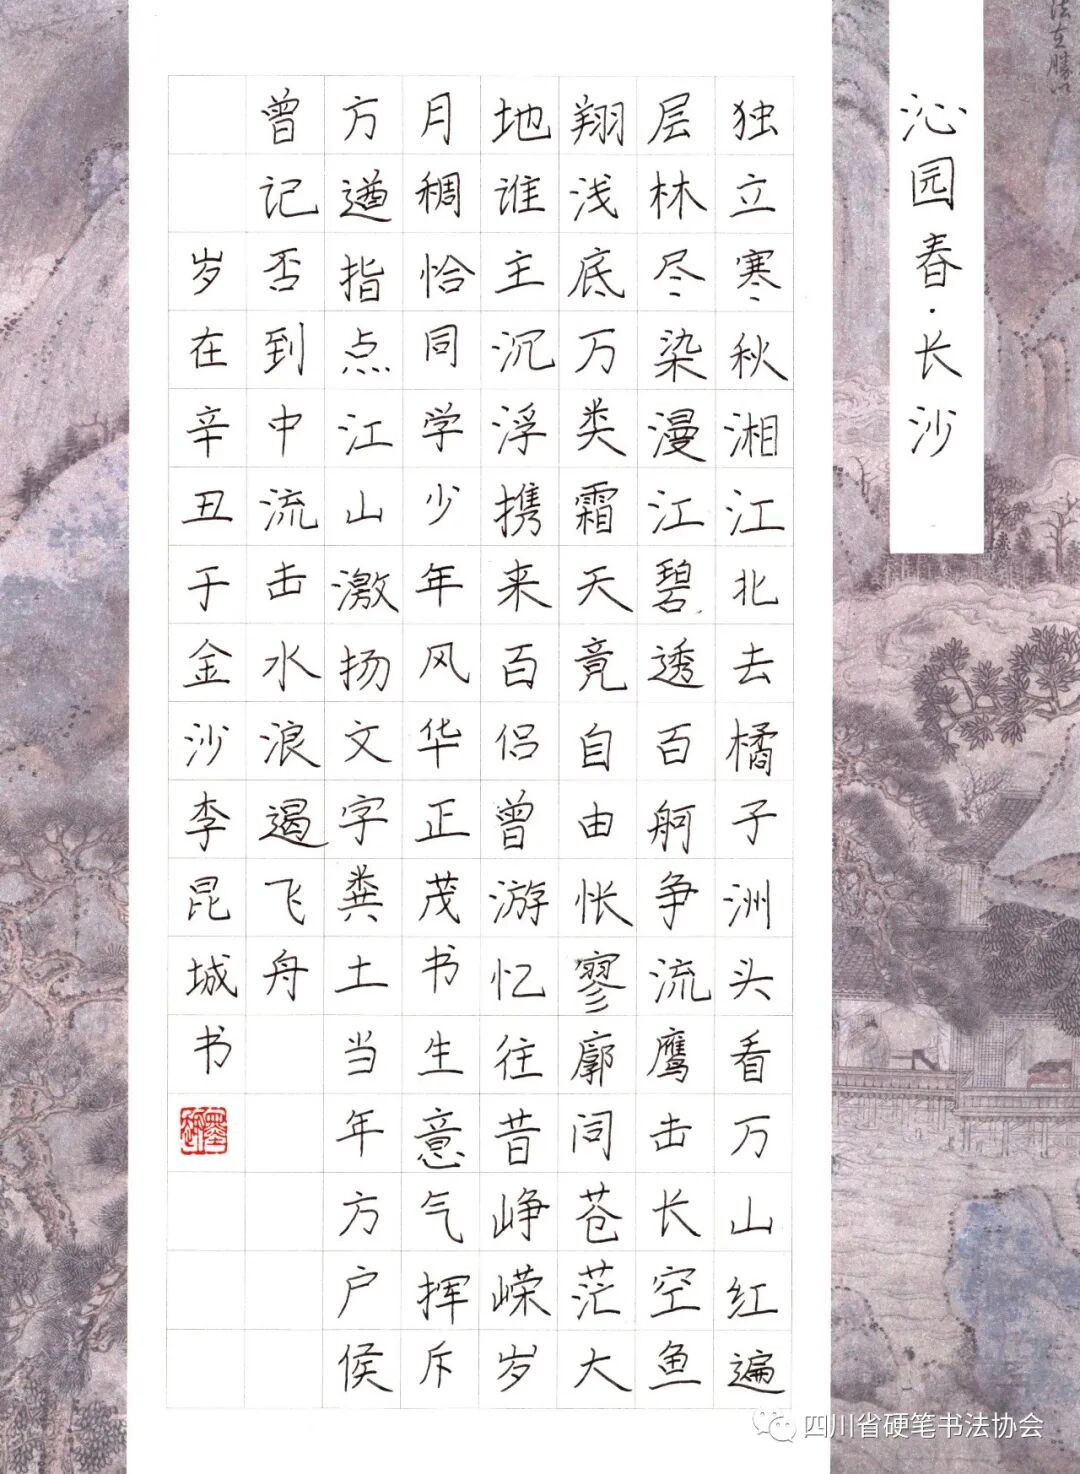 沁园春·长沙
独立寒秋湘江北去橘子洲头看万山红遍
层林尽染漫江碧透百舸争流鹰击长空鱼
翔浅底万类霜天竟自由怅寥廓问苍茫大
地谁主沉浮携来百侣曾游忆往昔峥嵘岁
月稠恰同学少年风华正茂书生意气挥斥
方遒指点江山激扬文字粪土当年方户侯
曾记否到中流击水浪遏飞舟
岁在辛丑于金沙李昆城书
四川省硬笔书法协会